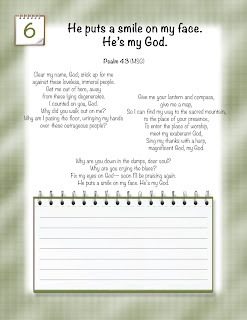 6
He puts a smile on my face.
He's my God.
Psalm 43 (MSG)
Clear my name, God; stick up for me
against these loveless, immoral people.
Get me out of here, away
from these lying degenerates.
I counted on you, God.
Why did you walk out on me?
Why am I pacing the floor, wringing my hands
over these outrageous people?
Give me your lantern and compass,
give me a map,
So I can find my way to the sacred mountain,
to the place of your presence,
To enter the place of worship,
meet my exuberant God,
Sing my thanks with a harp,
magnificent God, my God.
Why are you down in the dumps, dear soul?
Why are you crying the blues?
Fix my eyes on God— soon I'll be praising again.
He puts a smile on my face. He's my God.